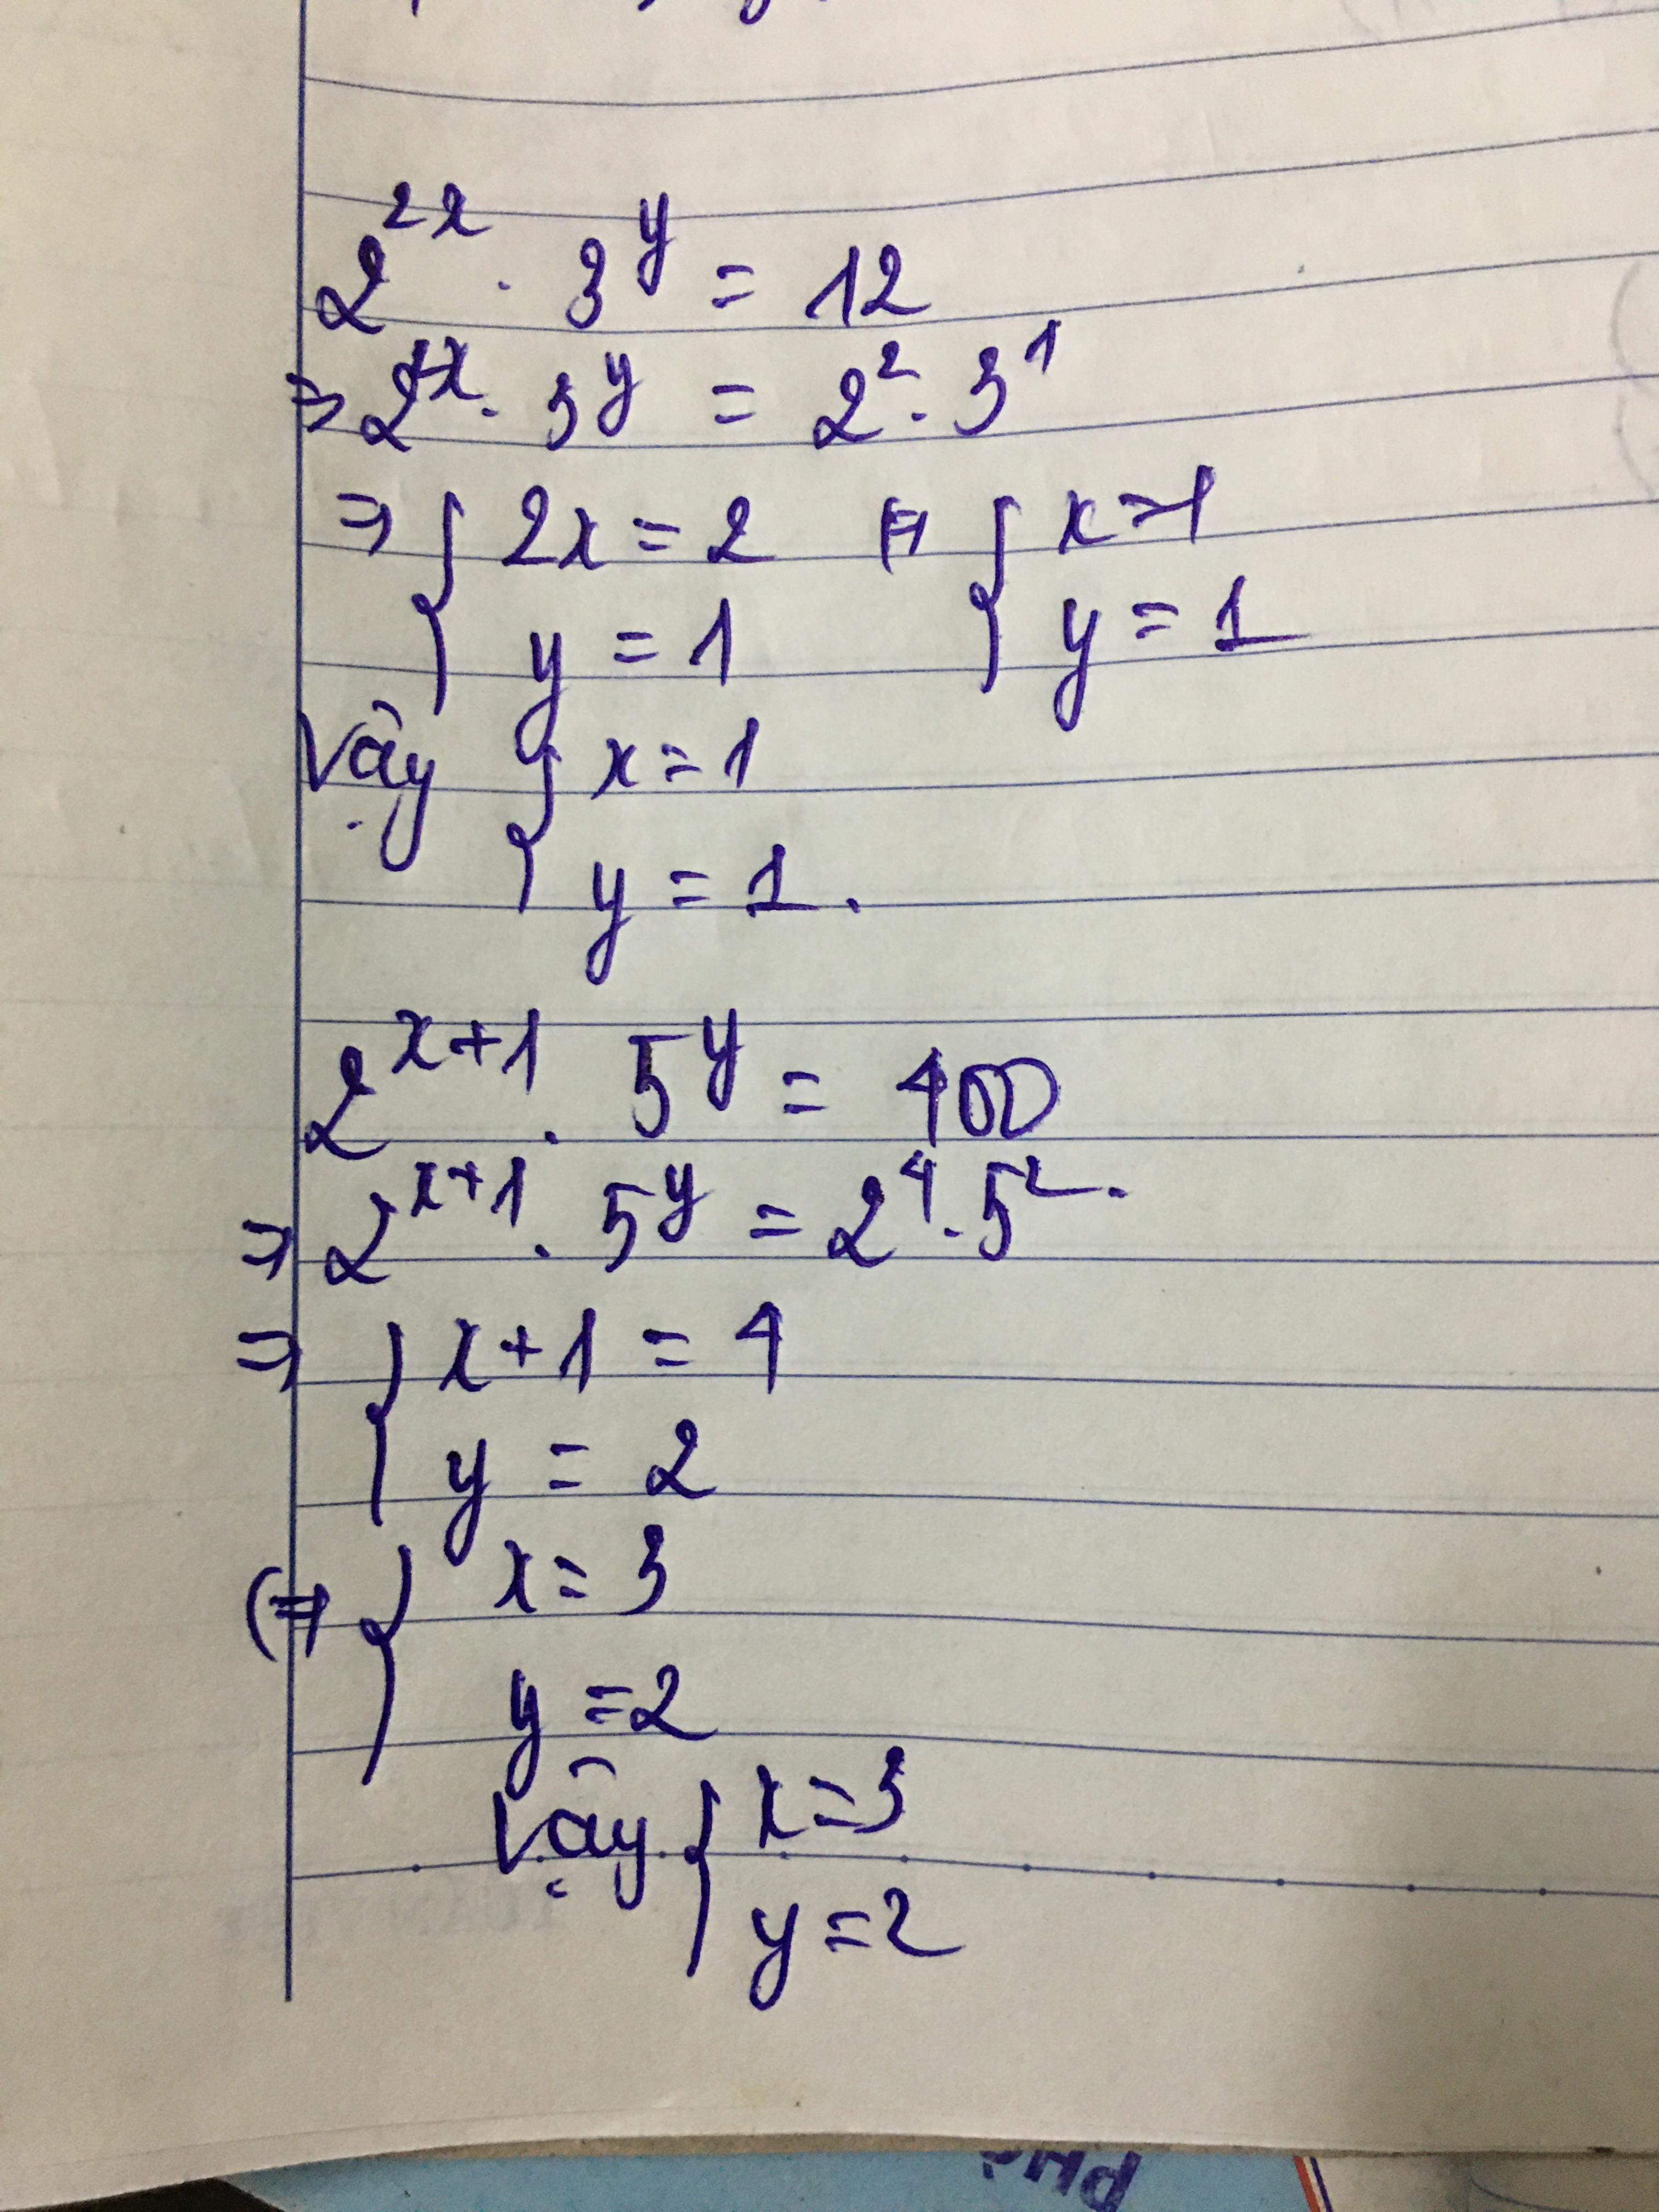 2^{2x} . 3^y = 12
⇒ 2^{2x} . 3^y = 2^2 . 3^1
⇒ { 2x = 2 ⇔ { x = 1
y = 1 y = 1
Vậy { x = 1
y = 1 .
2^{x+1} . 5^y = 400
⇒ 2^{x+1} . 5^y = 2^4 . 5^2 .
⇒ { x + 1 = 4
y = 2
⇔ { x = 3
y = 2
Vậy { x = 3
y = 2